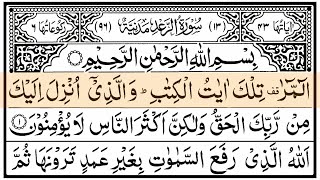 اٰيَاتُهَا ٤٣ (١٣) سُوْرَةُ الرَّعْدِ مَدَنِيَّةٌ (٩٦) رُكُوْعَاتُهَا ٦
بِسْمِ اللّٰهِ الرَّحْمٰنِ الرَّحِيْمِ
الٓمّٓرٰ قف تِلْكَ اٰيٰتُ الْكِتٰبِ ؕ وَالَّذِيْۤ اُنْزِلَ اِلَيْكَ
مِنْ رَّبِّكَ الْحَقُّ وَلٰكِنَّ اَكْثَرَ النَّاسِ لَا يُؤْمِنُوْنَ ۝١
اَللّٰهُ الَّذِيْ رَفَعَ السَّمٰوٰتِ بِغَيْرِ عَمَدٍ تَرَوْنَهَا ثُمَّ